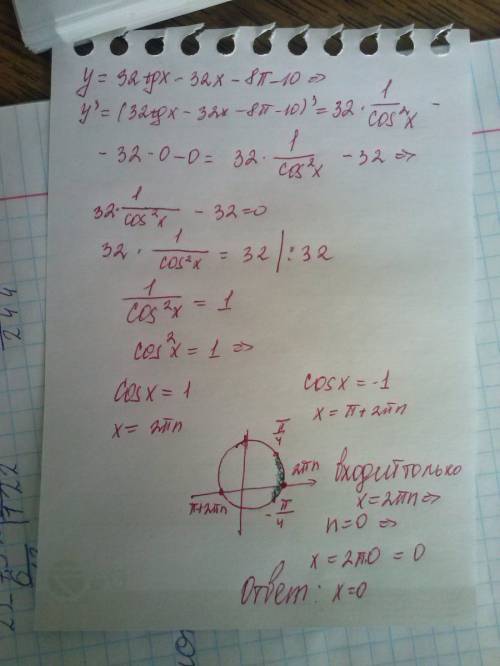 y = 32tgx - 32x - 8π - 10 ⇒
y' = (32tgx - 32x - 8π - 10)' = 32 · 1/cos²x -
- 32 - 0 - 0 = 32 · 1/cos²x - 32 ⇒
32 · 1/cos²x - 32 = 0
32 · 1/cos²x = 32 | : 32
1/cos²x = 1
cos²x = 1 ⇒
cosx = 1
x = 2πn
cosx = -1
x = π + 2πn
π/4
2πn
π+2πn
-π/4
входит только
x = 2πn ⇒
n = 0 ⇒
x = 2π0 = 0
Ответ: x = 0
244